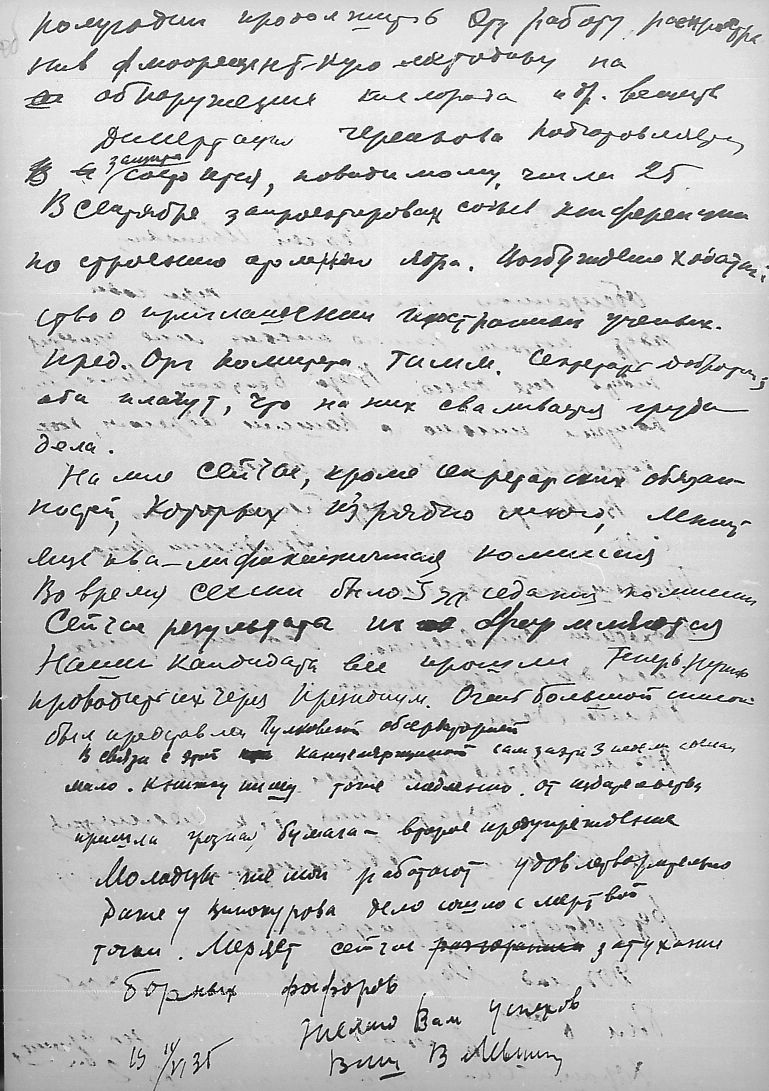 полугодии продолжить эту работу, распростра
нив флюоресцент-ную методику на
обнаружения кислорода и др. веществ
Диссертация Черенкова подготовляется
В защита состоится, повидимому, числа 25
В сентябре запроектирован созыв конференции
по строению атомного ядра. Возбуждено ходатай-
ство о приглашении иностранных ученых.
Пред. Орг Комитета Тамм. Секретарь Добротин
оба плачут, что на них сваливается груда
дела.
На мне сейчас, кроме секретарских обязан-
ностей, которых изрядно много, лежит
еще ква-лификационная комиссия
Во время сессии было 5 заседаний комиссии
Сейчас результаты их оформляются
Наши кандидаты все прошли Теперь нужно
проводить их через Президиум. Очень большой список
был представлен Пулковской обсерваторией
В связи с этой канцелярщиной сам за эти 3 месяца сделал
мало. Книжку пишу тоже медленно. От издательства
пришла грозная бумага - второе предупреждение
Молодые же мои работают удовлетворительно
Даже у Винокурова дело сошло с мертвой
точки. Меряет сейчас затухание
борных фосфоров
Желаю Вам успехов
19 IV 35 Ваш В Левшин